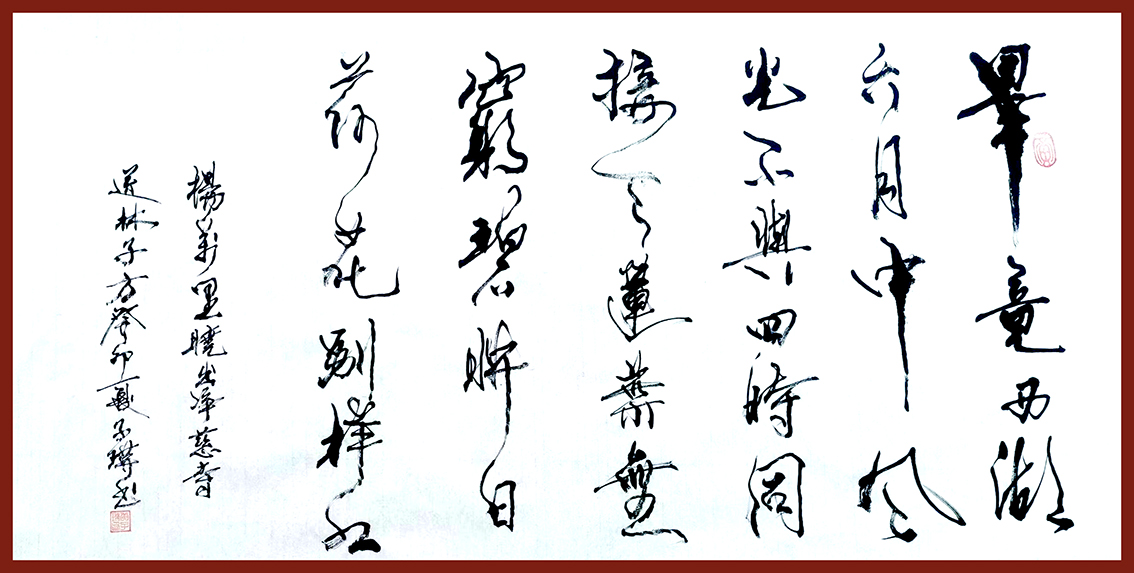 畢竟西湖
六月中風
光不與四時同
接天蓮葉無
窮碧映日
荷花別樣紅
楊萬里曉出淨慈寺
送林子方癸卯夏子